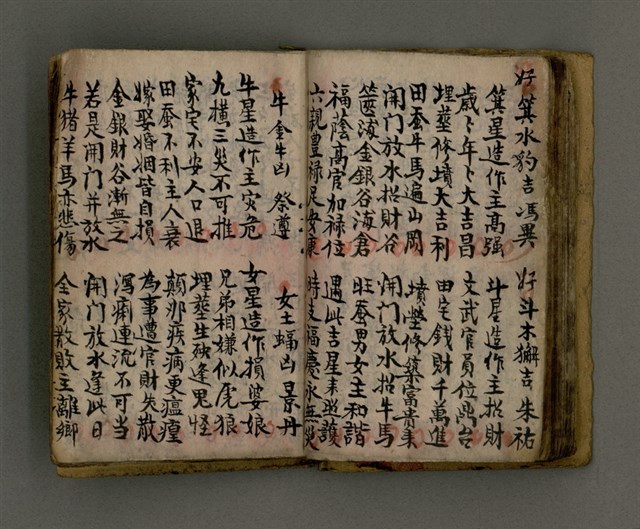 好箕水豹吉馮異
箕星造作主高强
歲卜年卜大吉昌
埋塟修墳大吉利
田蚕牛馬遍山岡
開门放水招財谷
篋滿金銀谷滿倉
福蔭高官加禄位
六親豊禄足安康
好斗木獬吉朱祐
斗星造作主招財
文武官員位禹台
田宅錢財千萬進
墳塋修築富貴來
開门放水招牛馬
旺蚕男女主和諧
遇此吉星來照護
時支福慶永無災
牛金牛凶祭遵
牛星造作主灾危
九橫三災不可推
家宅不安人口退
田蚕不利主人衰
嫁娶婚姻皆自損
金銀財谷漸無之
若是開门并放水
牛猪羊馬亦悲傷
女土蝠凶景丹
女星造作損婆娘
兄弟相嫌似虎狼
埋塟生殃逢鬼怪
顛邪疾病更瘟瘟
為事遭官財失散
瀉痢連流不可当
開门放水逢此日
全家散敗主離鄉